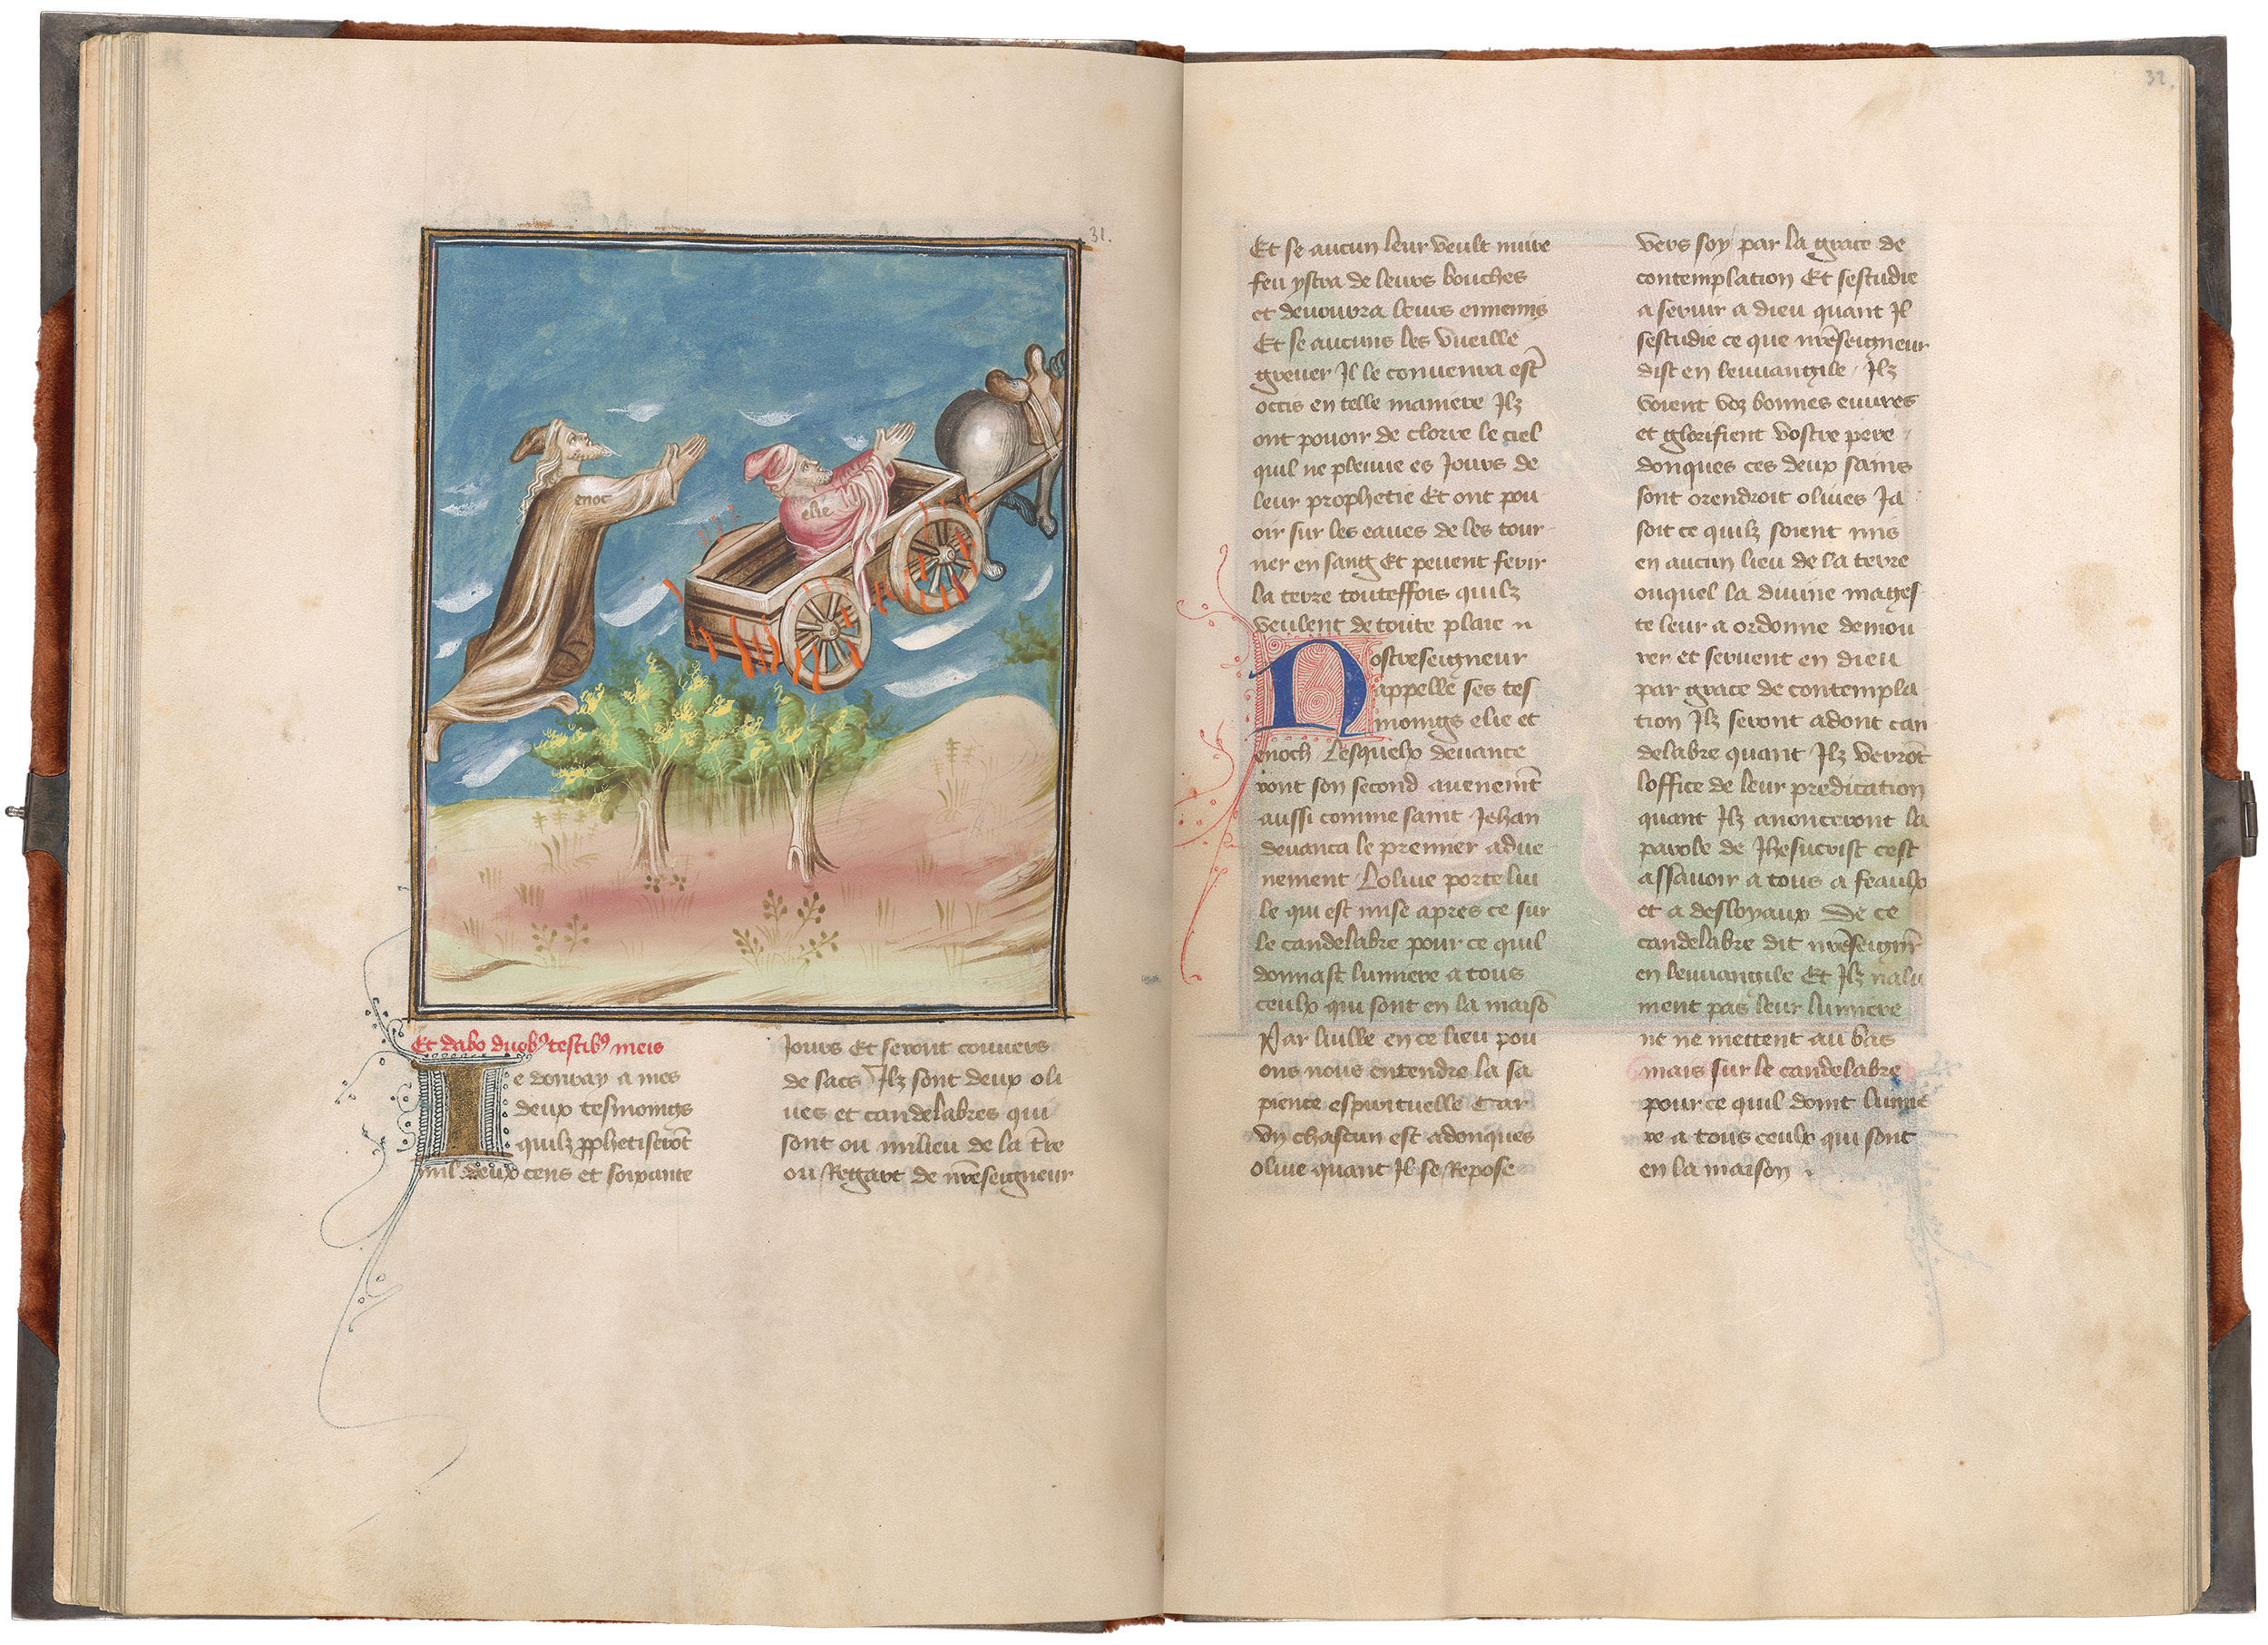 31.
enoc
elie
Et dabo duobꝰ testibꝰ meis
Je donray a mes
deux tesmoings
quilz ꝓphetiserōt
mil deux cens et soixante
Jours Et seront couvers
de sacs Ilz sont deux oli
ues et candelabres qui
sont ou milieu de la t̄re
ou Regart de nr̄eseigneur
32.
Et se aucun leur veult nuire
feu ystra de leurs bouches
et deuourra leurs ennemis
Et se aucuns les vueille
greuer Il le conuenra estr̄
occis en telle maniere Ilz
ont pouoir de clorre le ciel
quil ne pleuue es Jours de
leur prophetie Et ont pou
oir sur les eaues de les tour
ner en sang Et peuent ferir
la terre touteffois quilz
veulent de toute plaie
Nostreseigneur
appelle ses tes
moings elie et
enoch Lesquelx deuance
ront son second auenemt̄
aussi comme saint Jehan
deuanca le premier adue
nement Loliue porte lui
le qui est mise apres ce sur
le candelabre pour ce quil
donnast lumiere a tous
ceulx qui sont en la maisō
Par luille en ce lieu pou
ons nous entendre la sa
pience espirituelle Car
vn chascun est adonques
oliue quant Il se Repose
vers soy par la grace de
contemplation Et sestudie
a seruir a dieu quant Il
sestudie ce que nr̄eseigneur
dist en leuuangile Ilz
voient voz bonnes euures
et glorifient vostre pere
donques ces deux sains
sont orendroit oliues Ja
soit ce quilz soient mis
en aucun lieu de la terre
ouquel la diuine mages
te leur a ordonne demou
rer et seruent en dieu
par grace de contempla
tion Ilz seront adont can
delabre quant Ilz verrōt
loffice de leur predication
quant Ilz anonceront la
parole de Jhesucrist cest
assauoir a tous a feaulx
et a desloyaux De ce
candelabre dit nr̄eseignr̄
en leuuangile Et Ilz nalu
ment pas leur lumiere
ne ne mettent au bas
mais sur le candelabre
pour ce quil doint lumie
re a tous ceulx qui sont
en la maison